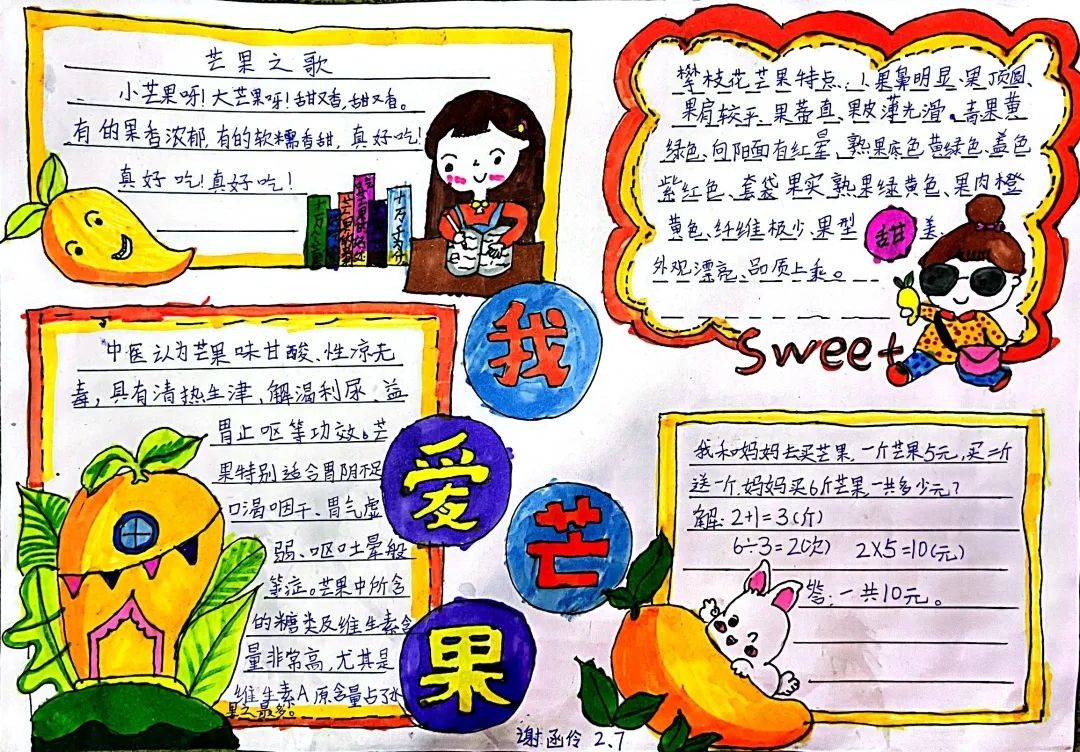 芒果之歌
小芒果呀!大芒果呀!甜又香,甜又香。
有的果香浓郁,有的软糯香甜,真好吃!
真好吃!真好吃!
攀枝花芒果特点:1.果鼻明显、果顶圆、
果肩较平、果蒂直、果皮薄光滑、青果黄
绿色、向阳面有红晕、熟果底色黄绿色、盖色
紫红色、套袋果实熟果绿黄色、果肉橙
黄色、纤维极少、果型 甜 美、
外观漂亮、品质上乘。
sweet
我
爱
芒
果
中医认为芒果味甘酸、性凉无
毒,具有清热生津、解渴利尿、益
胃止呕等功效。芒
果特别适合胃阴不足
口渴咽干、胃气虚
弱、呕吐晕船
等症。芒果中所含
的糖类及维生素含
量非常高,尤其是
维生素A原含量占了水
果之最多。
我和妈妈去买芒果,一斤芒果5元,买二斤
送一斤,妈妈买6斤芒果一共多少元?
解:2+1=3(斤)
6÷3=2(次) 2×5=10(元)
答:一共10元。
谢函伶 2.7